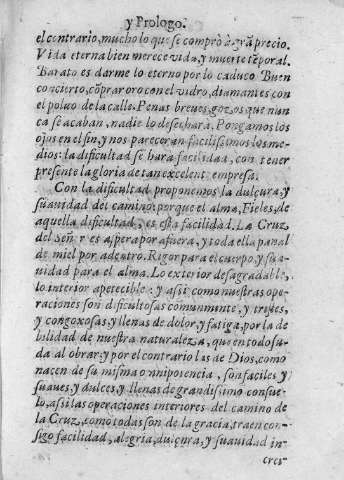 y Prologo.
el contrario, mucho lo que se comprò à grã precio.
Vida eterna bien merece vida, y muerte tẽporal.
Barato es darme lo eterno por lo caduco Buen
concierto, cõprar oro con el vidro, diamantes con
el polvo de la calle. Penas breves, gozos que nun
ca se acaban, nadie lo desechará. Pongamos los
ojos en el fin, y nos pareceran facilissimos los me-
dios: la dificultad se hará facilidad, con tener
presente la gloria de tan excelente empresa.
Con la dificultad proponemos la dulçura, y
suavidad del camino: porque el alma, Fieles, de
aquella dificultad, es esta facilidad. La Cruz
del Señor es aspera por afuera, y toda ella panal
de miel por adẽtro. Rigor para el cuerpo, y sua-
vidad para el alma. Lo exterior desagradable,
lo interior apetecible: y assi como nuestras ope-
raciones son dificultosas comunmente, y tristes,
y congoxosas, y llenas de dolor, y fatiga, por la de
bilidad de nuestra naturaleza, que en todo su-
da al obrar: y por el contrario las de Dios, como
nacen de su misma omnipotencia, son faciles y
suaves, y dulces, y llenas de grandissimo consue-
lo, assi las operaciones interiores del camino de
la Cruz, como todas son de la gracia, traen con-
sigo facilidad, alegria, dulçura, y suavidad in-
cres-